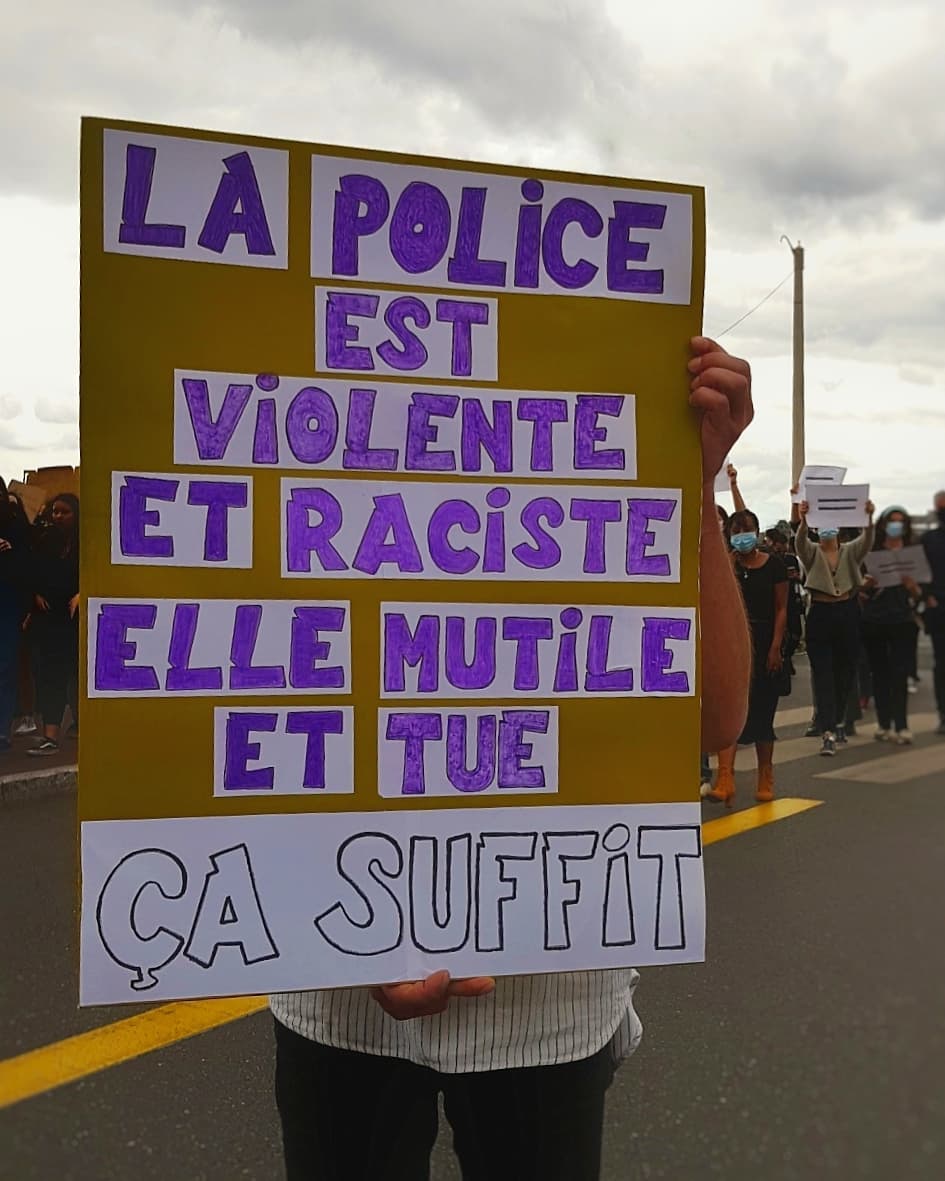 LA POLiCE
EST
ViOLENTE
ET RACiSTE
ELLE MUTiLE
ET TUE
ÇA SUFFiT